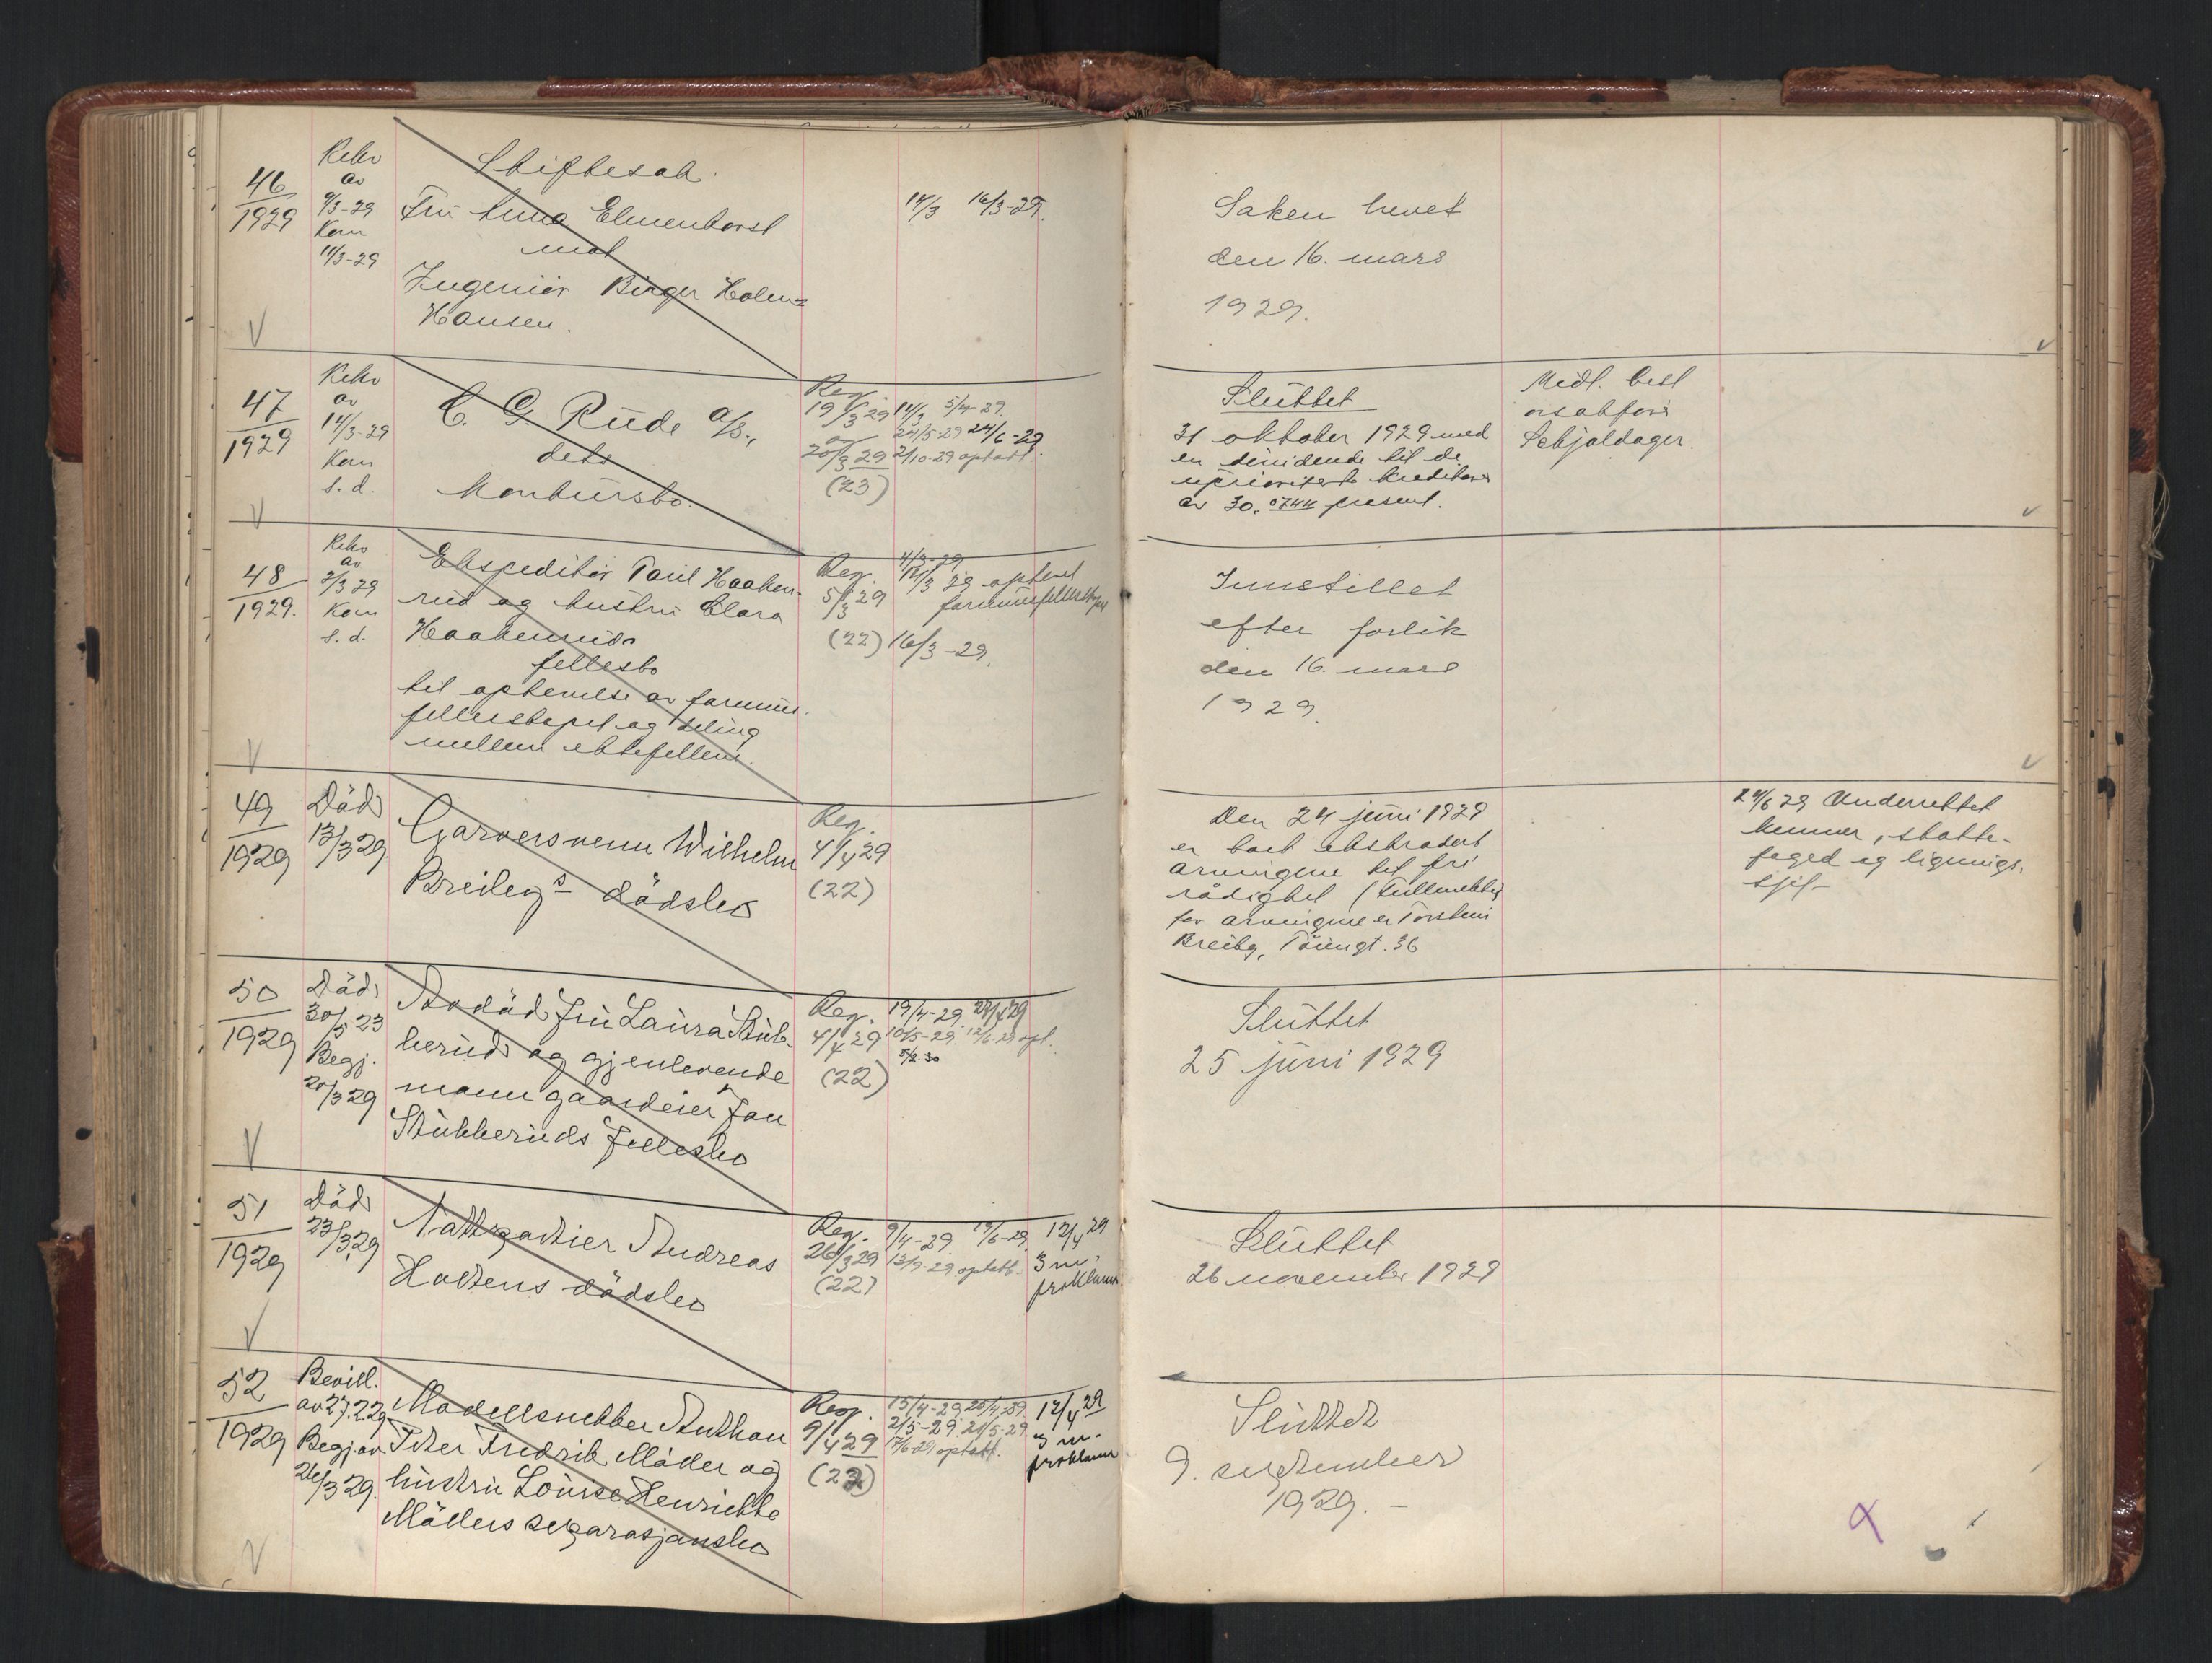 46
1929
Rekv
av
9/3-29
Kom
11/3-29
Skiftesak.
Fru Anna Elmenhorst
mot
Ingeniør Birger Holm=
Hansen.
14/3 16/3-29.
Saken hevet
den 16. mars
1929.
47
1929
Rekv
av
14/3-29
Kom
s. d.
C. G. Rude A/S.,
dets
konkursbo.
Reg.
19/3 29
20/3 29
(23)
14/3 5/4-29.
24/5-29 24/6-29.
2/10-29 optatt.
Sluttet
31 oktober 1929 med
en dividende til de
uprioriterte kreditorer
av 30,0744 prosent.
Midl. best
o.r.sakfører
Schjoldager.
48
1929.
Rekv
av
2/3 29
Kom
s. d.
Ekspeditør Paul Haaken-
rud og hustru Clara
Haakenruds
fellesbo
til ophevelse av formues-
fellesskapet og deling
mellem ektefellene.
Reg.
5/3 29
(22)
4/3-29
12/3 29 ophevet
formuesfellesskapet
16/3-29.
Innstillet
efter forlik
den 16. mars
1929.
49
1929
Död
13/3 29
Garversvenn Wilhelm
Breibys dödsbo
Reg.
4/4 29
(22)
Den 24 juni 1929
er boet ekstradert
arvingene til fri
rådighet (Fullmektig
for arvingene er Torstein
Breiby, Töiengt. 36
24/6 29 Underrettet
kemner, skatte-
foged og lignings-
sjef-
50
1929
Död
30/5 23
Begj.
20/3 29
Avdöd fru Laura Stub-
beruds og gjenlevende
mann gaardeier Jan
Stubberuds fellesbo
Reg.
4/4 29
(22)
19/4-29. 24/4 29
10/5-29. 12/6-29 opt.
5/2.30
Sluttet
25 juni 1929
51
1929
Död
23/3 29
Vaktgartier Andreas
Holtens dödsbo
Reg.
26/3 29
(22)
9/4-29. 17/6-29.
13/9-29. optatt.
12/4 29
3 m.
proklama
Sluttet
26 november 1929
52
1929
Bevill.
av 27.2.29
Begj. av
26/3 29.
Modellsnekker Anthon
Peter Fredrik Möller og
hustru Louise Henriette
Möllers separasjonsbo
Reg.
9/4 29
(22)
15/4-29. 25/4-29.
2/5-29. 21/5-29.
17/6-29 optatt.
12/4 29
3 m.
proklama
Sluttet
9. september
1929. -